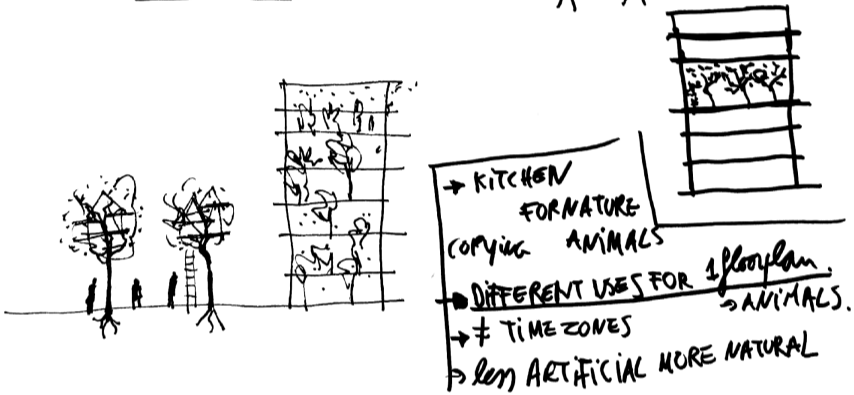 → KITCHEN
FOR NATURE
COPYING ANIMALS
→ DIFFERENT USES FOR 1 floorplan.
→ ANIMALS.
→ ≠ TIME ZONES
→ less ARTIFICIAL MORE NATURAL